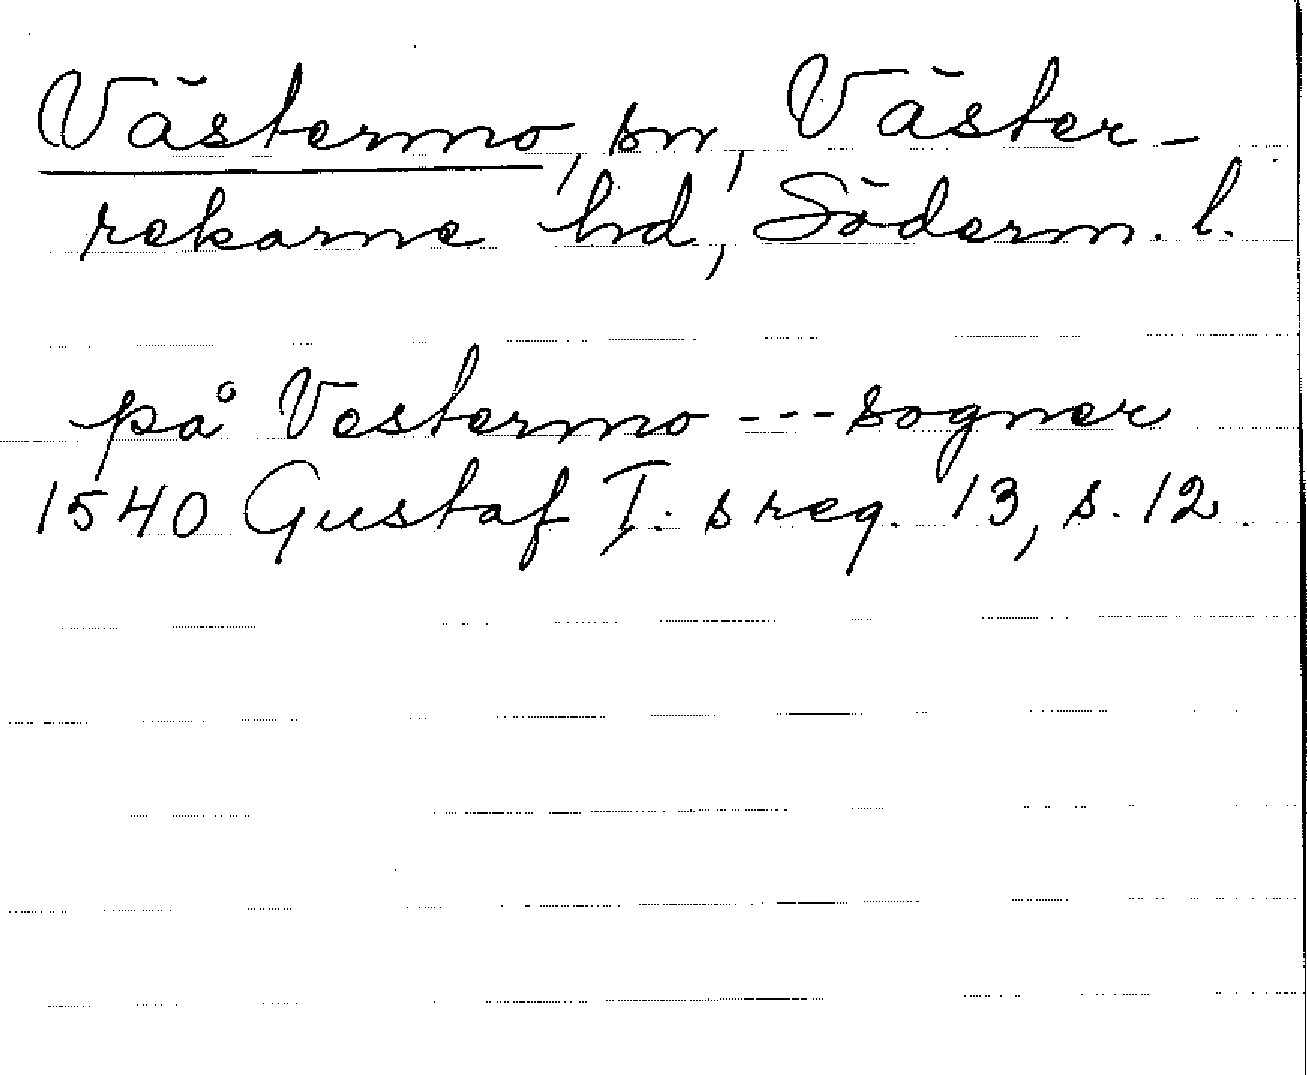 Västermo, sn, Väster-
rekarne hd, Söderm. l.
på Vestermo --- sogner
1540 Gustaf I. s reg. 13, s. 12.